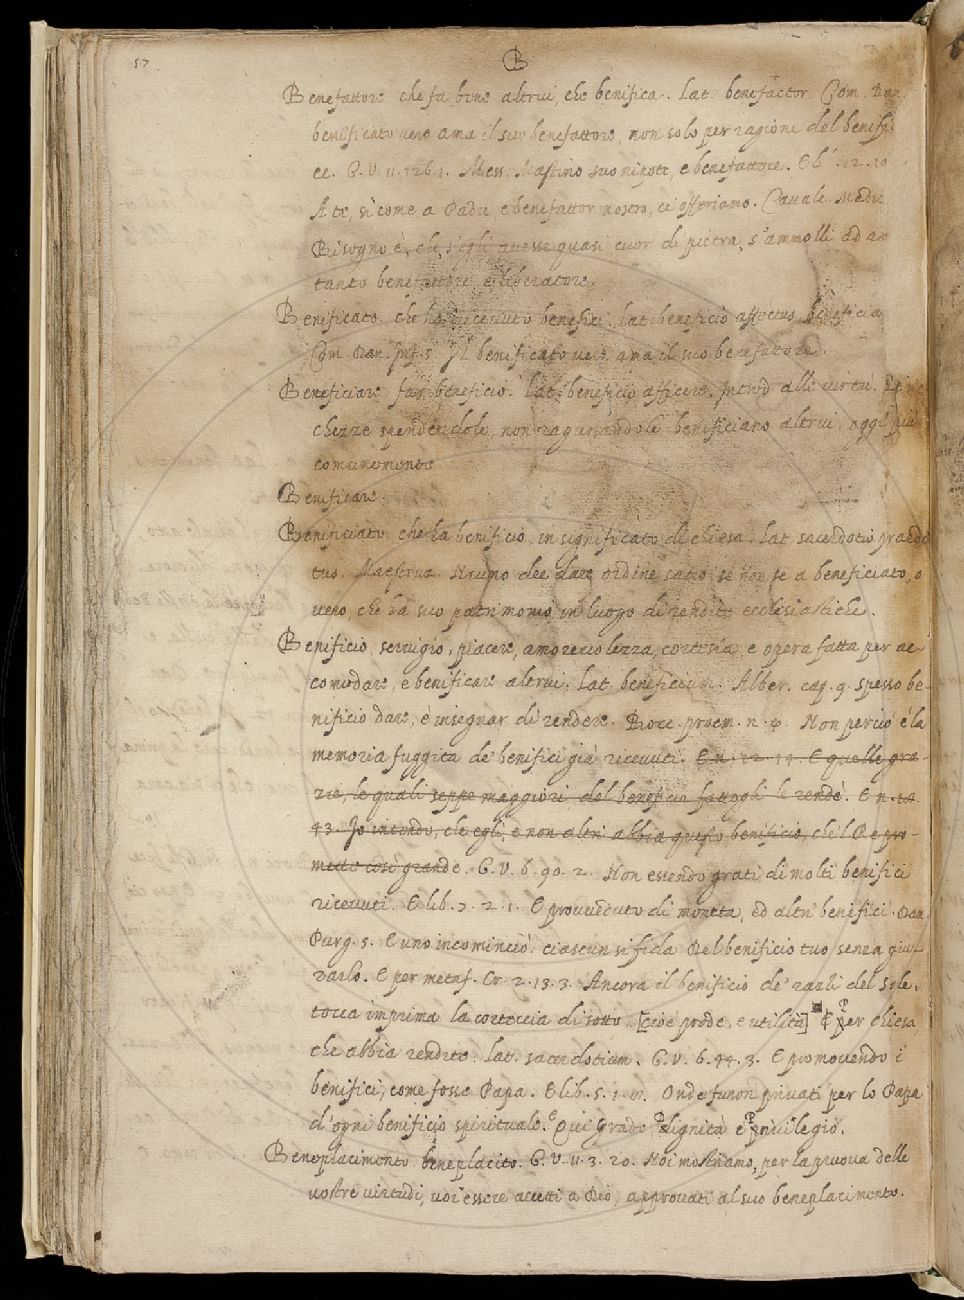 57
B
Benefattore che fa bene altrui, che benifica. Lat. benefactor. Com.
benificato vero ama il suo benefattore, non solo per ragione del benifi
ce. G. V. 11. 126. 1. Mess. Mastino suo nipote, e benefattore. E l. 12. 10
A te, sì come a Padre, e benefattor nostro, ci offeriamo. Cavalc. Medic
Bisogno è, che, s'egli avesse quasi cuor di pietra, s'ammolli ad a
tanto benefattore, e liberatore.
Benificato che ha ricevuto benefici. Lat. beneficio affectus
Com. Dan. Il benificato vero ama il suo benefattore.
Beneficiare far beneficio. Lat. beneficio afficere. Introd alle virtù.
chezze spendendole, non ragunandole benificiano altrui, oggi più
comunemente
Benificare.
Benificiato che ha benificio, in significato di chiesa. Lat. sacerdotio praedi
tus. Maestruz. Niuno dee dare ordine sacro se non se a beneficiato, o
vero, che ha suo patrimonio in luogo di rendite ecclesiastiche.
Benificio servigio, piacere, amorevolezza, cortesia, e opera fatta per ac-
comodare, e benificare altrui. Lat. beneficium. Alber. cap. 9. spesso be-
nificio dare, è insegnar di rendere. Bocc. proem. n. 4. Non perciò è la
memoria fuggita de' benifici già ricevuti. E n. 12. 14. E quelle gra-
zie, le quali seppe maggiori del beneficio fattogli le rendè. E n. 18.
43. Io intendo, che egli, e non altri abbia questo benificio, che'l Re pro-
mette così grande. G. V. 6. 90. 2. Non essendo grati di molti benifici
ricevuti. E lib. 7. 2. 1. E provveduto di moneta, ed altri benefici. Dan.
Purg. 5. E uno incominciò: ciascun si fida Del benificio tuo senza giu-
rarlo. E per metaf. Cr. 2. 13. 3. Ancora il benificio de' razzi del Sole,
tocca imprima la corteccia di sotto. [cioè prode, e utilità] per chiesa
che abbia rendite. Lat. sacerdotium. G. V. 6. 44. 3. E promovendo i
benifici, come fosse Papa. E lib. 5. 1. Onde furon privati per lo Papa
d'ogni benificio spirituale. E Qui grado dignità e privilegio.
Beneplacimento beneplacito. G. V. 11. 3. 20. Noi mostriamo, per la pruova delle
vostre virtudi, voi essere accetti a Dio, approvati al suo beneplacimento.